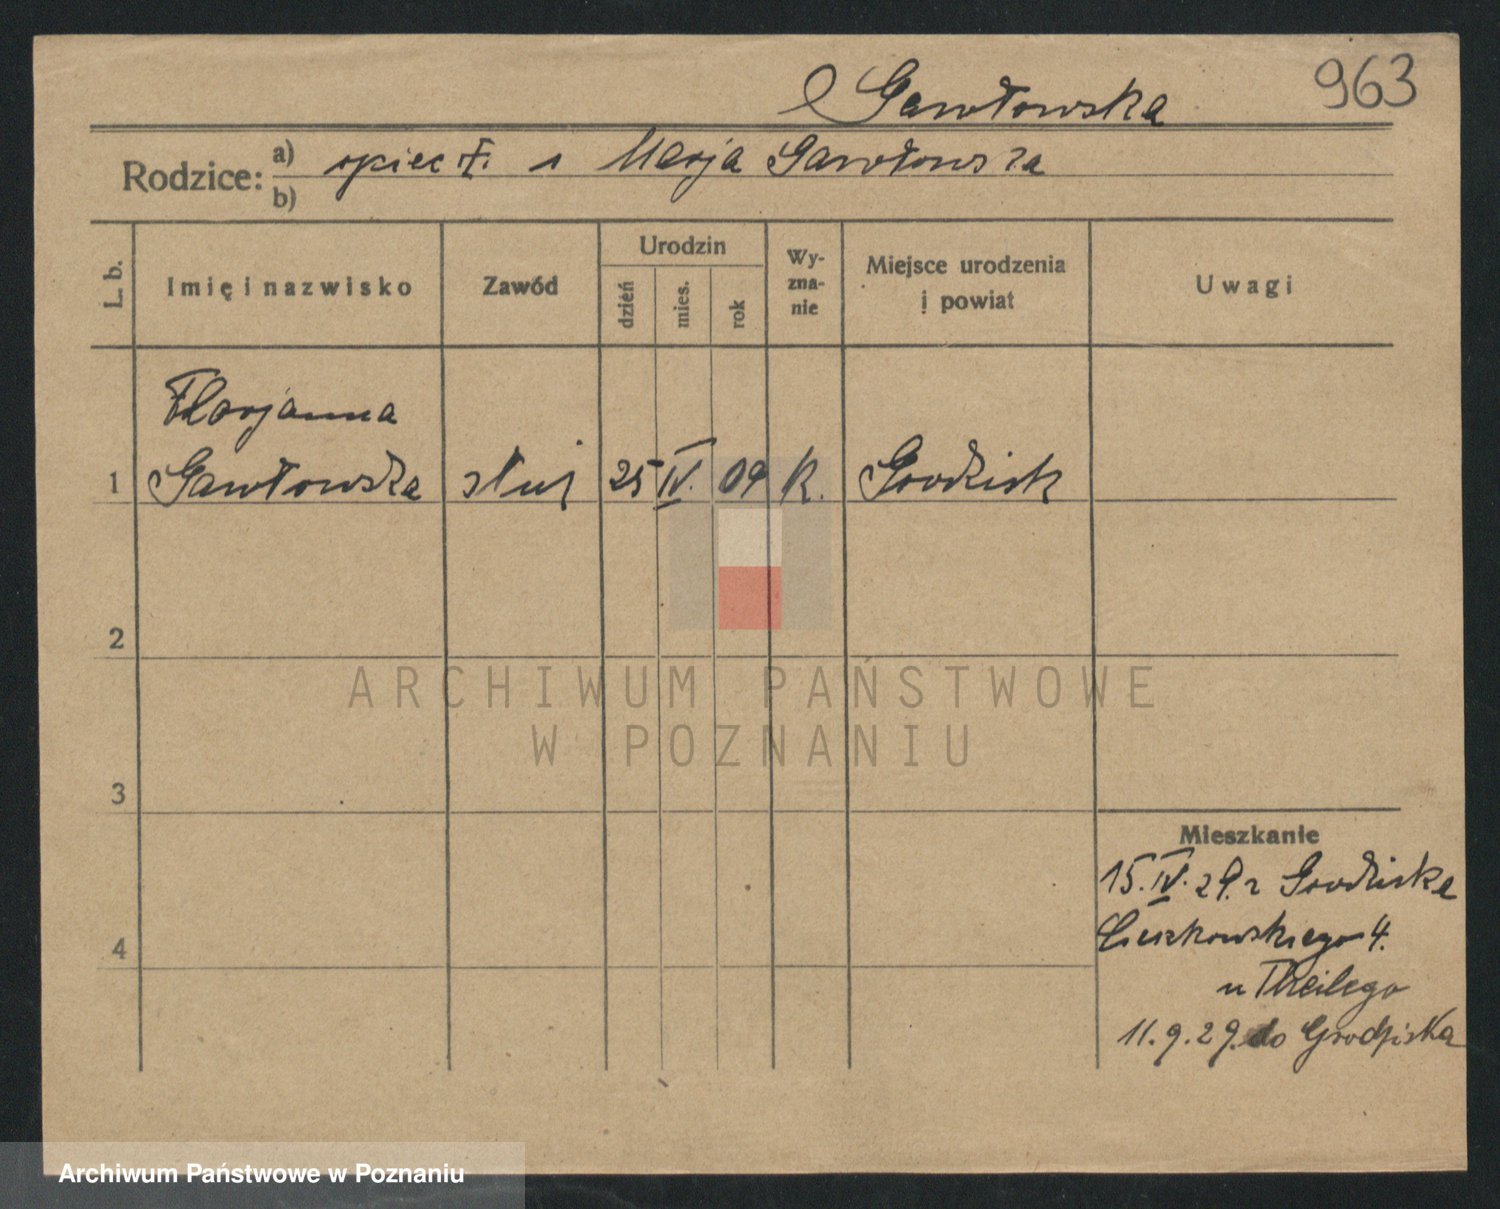 Gawłowska
963
Rodzice: a) Marja Gawłowska
b)
L. b.
Imię i nazwisko
Zawód
Urodzin
dzień
mies.
rok
Wy-
zna-
nie
Miejsce urodzenia
i powiat
Uwagi
Florjanna
1 Gawłowska służ 25 IV. 09 K. Grodzisk
2
ARCHIWUM PAŃSTWOWE
W POZNANIU
3
Mieszkanie
15.IV.29. z Grodziska
4
Cieszkowskiego 4.
u Theilego
11.9.29. do Grodziska
Archiwum Państwowe w Poznaniu